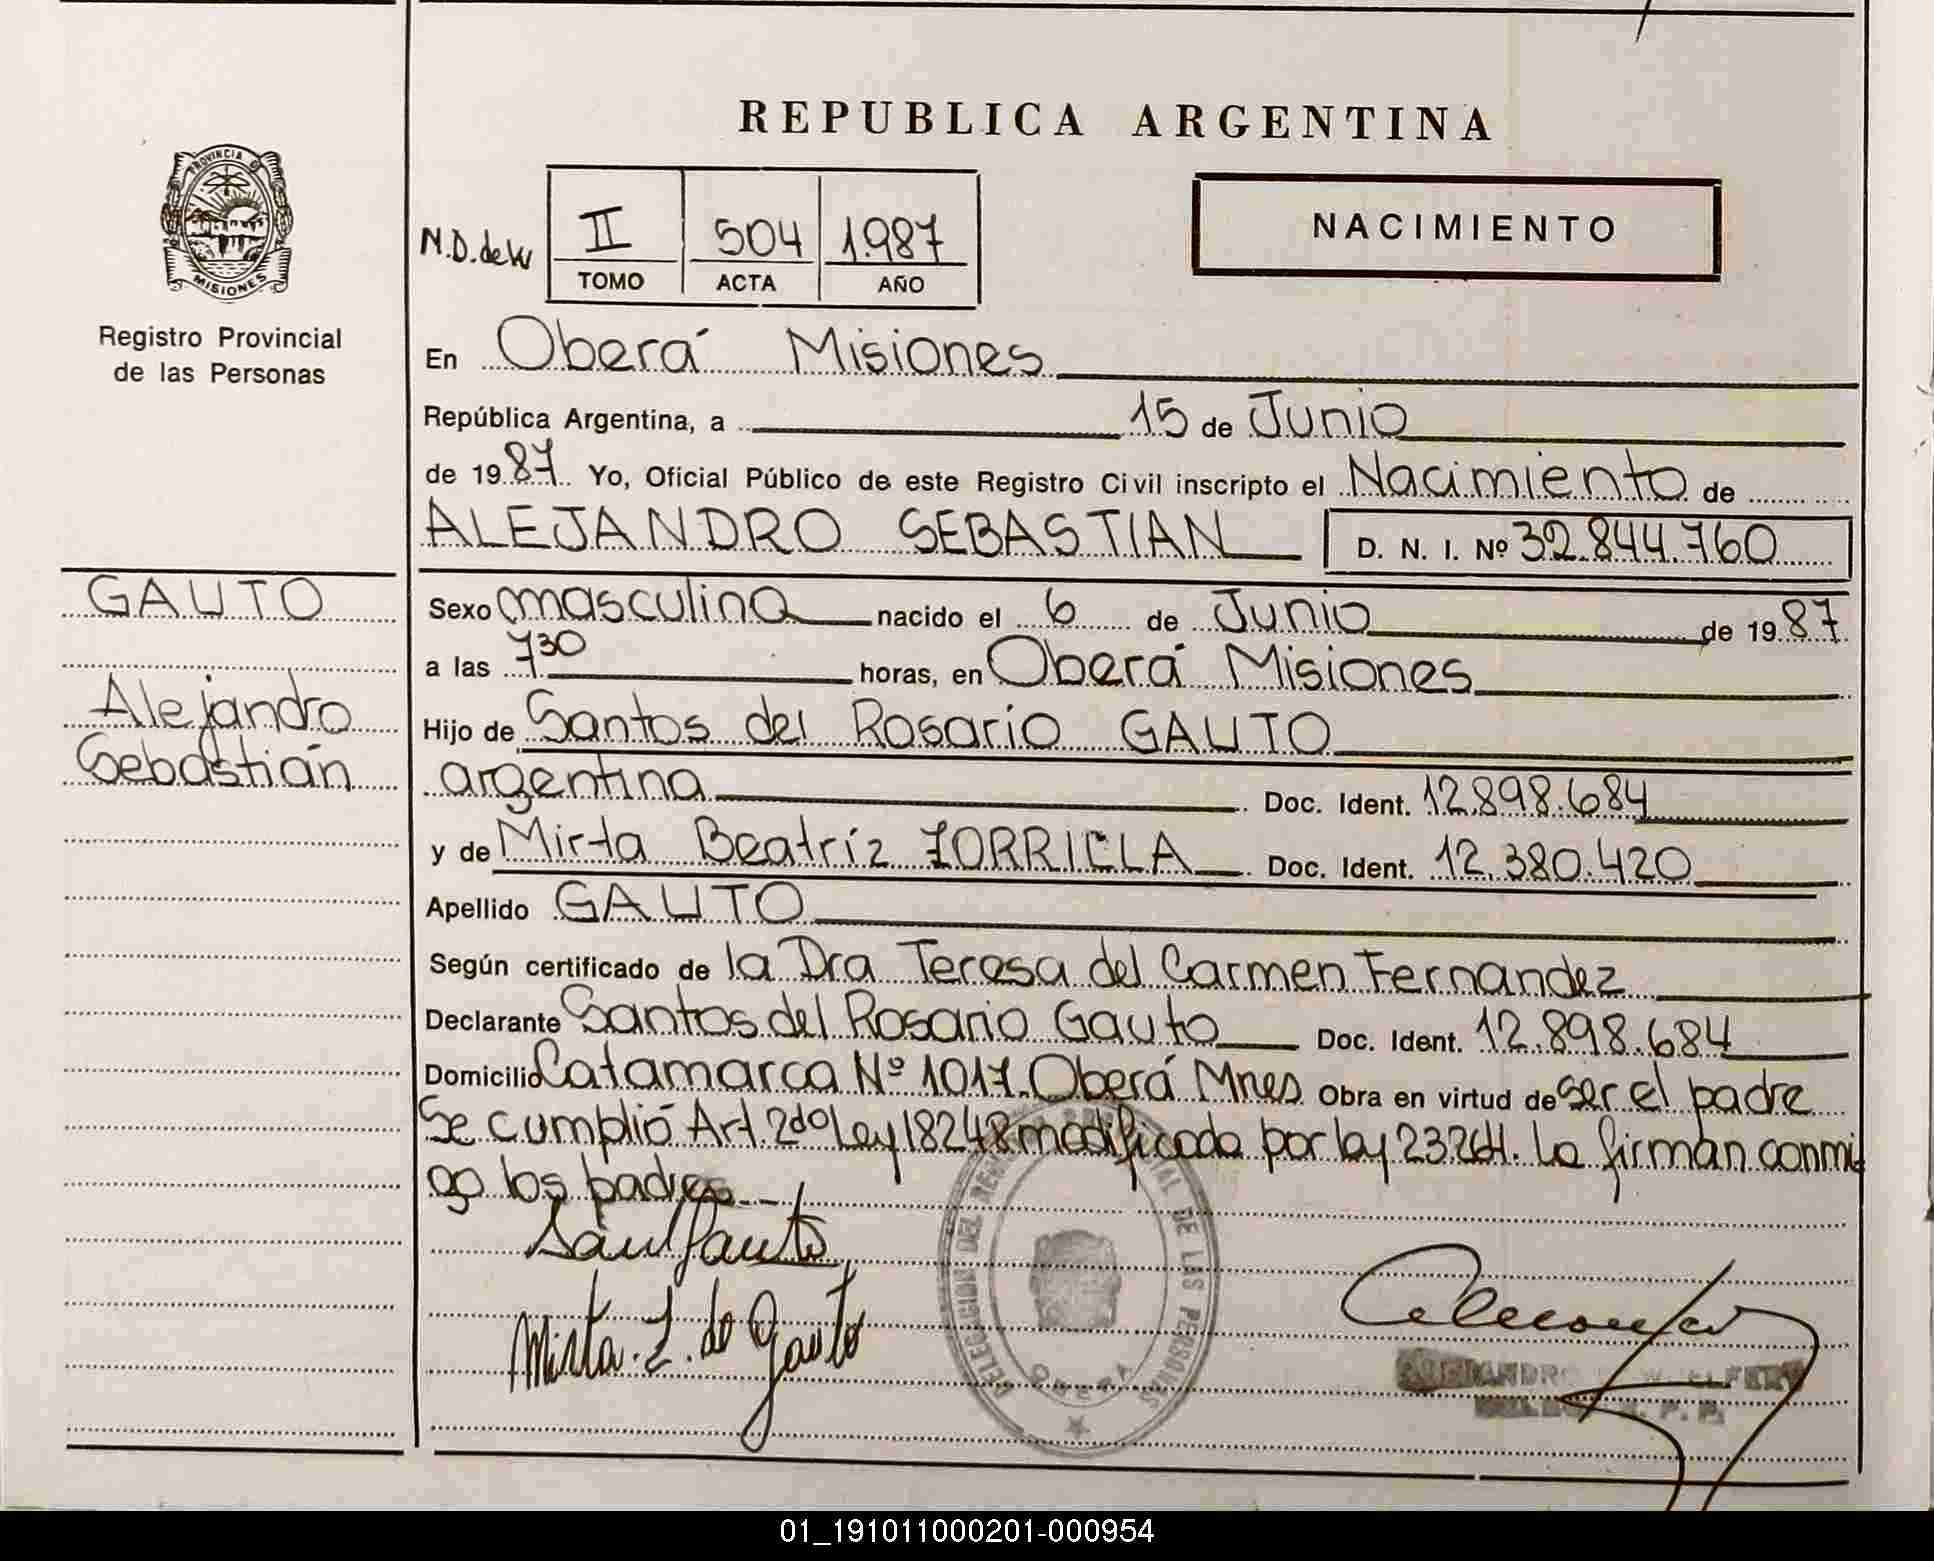 REPUBLICA ARGENTINA
PROVINCIA DE
MISIONES
Registro Provincial
de las Personas
N.D.
II 504 1.987
TOMO ACTA AÑO
NACIMIENTO
En Oberá Misiones
República Argentina, a 15 de Junio
de 1987 Yo, Oficial Público de este Registro Civil inscripto el Nacimiento de
ALEJANDRO SEBASTIAN D. N. I. Nº 32.844.760
GAUTO
Alejandro
Sebastián
Sexo masculino nacido el 6 de Junio de 1987
a las 730 horas, en Oberá Misiones
Hijo de Santos del Rosario GAUTO
argentina Doc. Ident. 12.898.684
y de Mirta Beatríz ZORRILLA Doc. Ident. 12.380.420
Apellido GAUTO
Según certificado de la Dra Teresa del Carmen Fernandez
Declarante Santos del Rosario Gauto Doc. Ident. 12.898.684
Domicilio Catamarca Nº 1017. Oberá Mnes Obra en virtud de ser el padre
Se cumplió Art. 2do Ley 18248 modificada por ley 23264. La firman conmi
go los padres
Gauto
Mirta. Z. de Gauto
DELEGACION DEL REGISTRO PROVINCIAL DE LAS PERSONAS
OBERA
ALEJANDRO
01_191011000201-000954